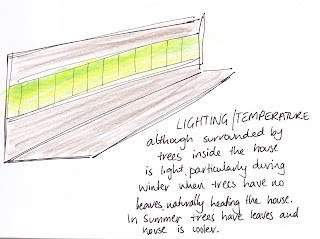 LIGHTING/TEMPERATURE
although surrounded by
trees inside the house
is light, particularly during
winter when trees have no
leaves, naturally heating the house.
In summer trees have leaves and
house is cooler.